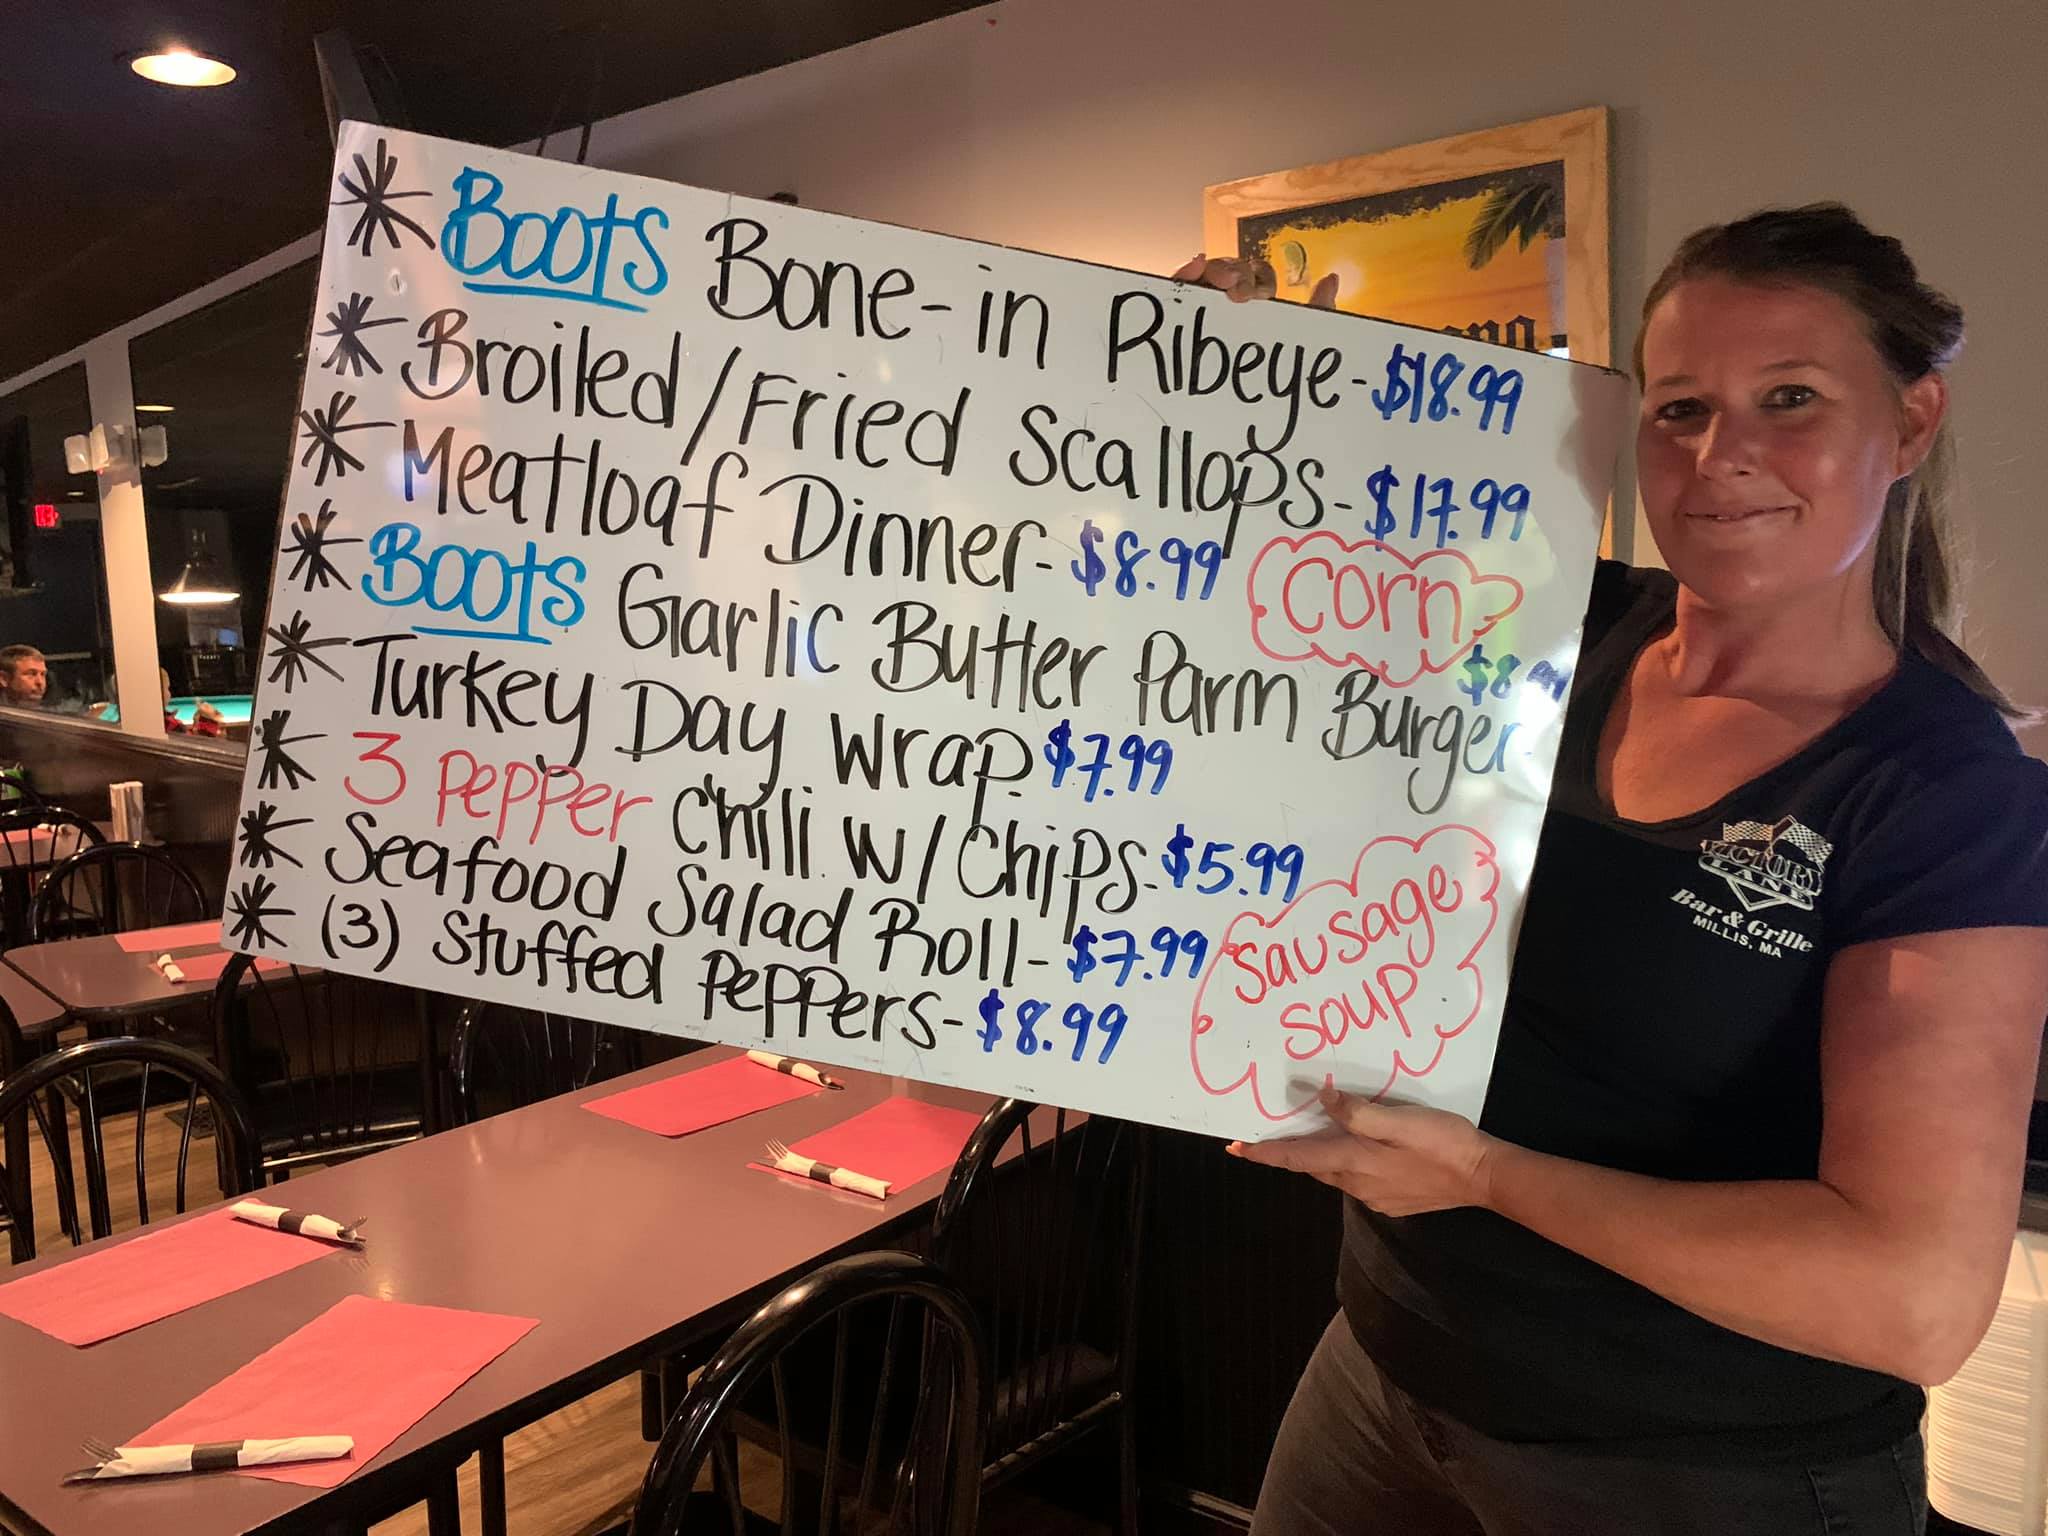 * Boots Bone-in Ribeye-$18.99
* Broiled/Fried Scallops-$17.99
* Meatloaf Dinner-$8.99
corn
* Boots Garlic Butter Parm Burger-
* Turkey Day Wrap $7.99
* 3 Pepper Chili w/Chips-$5.99
* Seafood Salad Roll-$7.99
* (3) Stuffed Peppers-$8.99
Sausage
Soup
VICTORY
LANE
Bar & Grille
MILLIS, MA